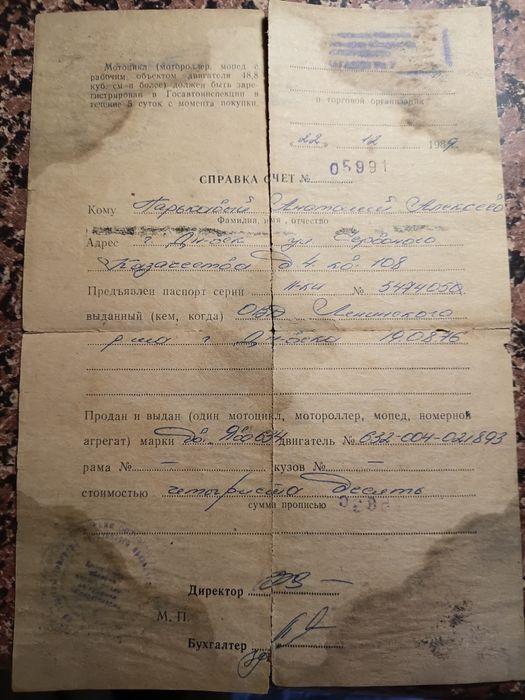 Мотоцикл (мотороллер, мопед с
рабочим объектом двигателя 48,8
куб. см и более) должен быть заре-
гистрирован в Госавтоинспекции в
течение 5 суток с момента покупки.
и торговой организации
22 12 1989.
05991
СПРАВКА СЧЕТ №
Кому Анатолий Алексее
Фамилия, имя, отчество
Адрес г Дн-ск ул. Червоного
Казачества д 4 кв. 108
Предъявлен паспорт серии № 547405
выданный (кем, когда) Ленинского
р-на г Дн-ска 19.08.76
Продан и выдан (один мотоцикл, мотороллер, мопед, номерной
агрегат) марки двигатель № 632-004-021893
рама № — кузов № —
стоимостью четыреста десять
сумма прописью
Директор
М. П.
Бухгалтер